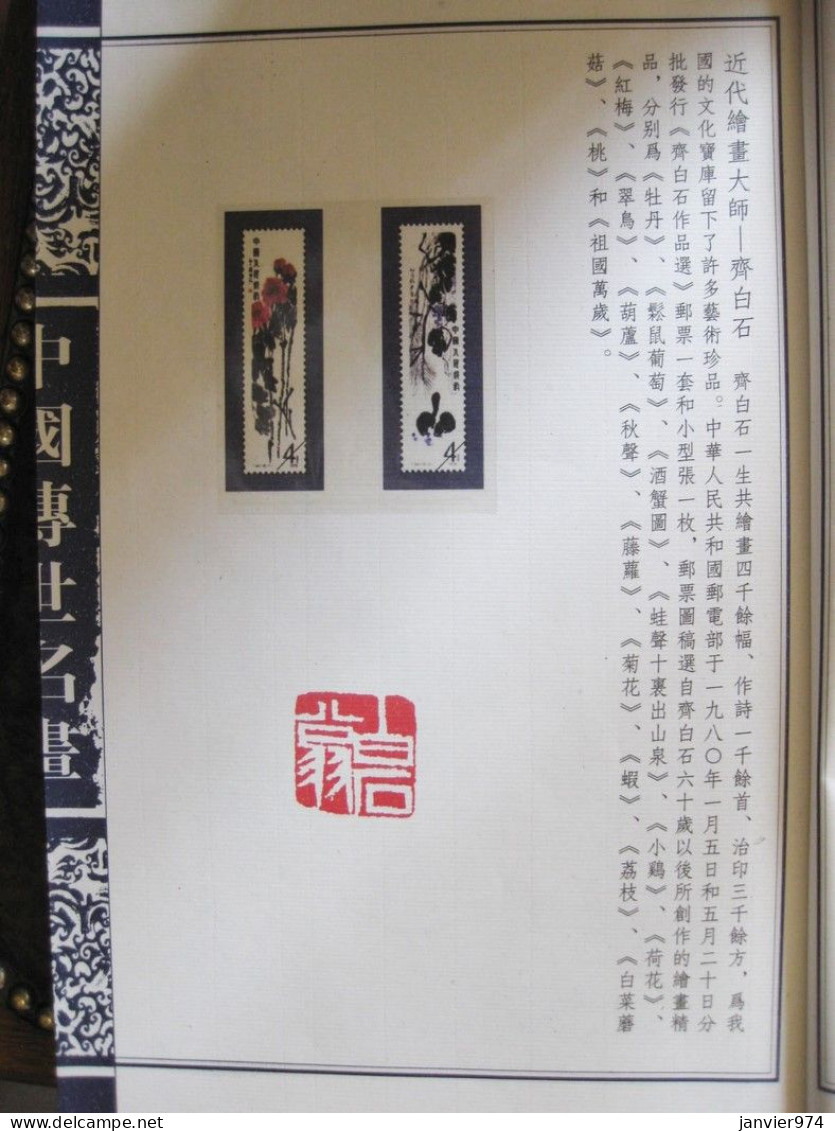 近代繪畫大師—齊白石　齊白石一生共繪畫四千餘幅、作詩一千餘首、治印三千餘方，爲我
國的文化寶庫留下了許多藝術珍品。中華人民共和國郵電部于一九八〇年一月五日和五月二十日分
批發行《齊白石作品選》郵票一套和小型張一枚，郵票圖稿選自齊白石六十歲以後所創作的繪畫精
品，分别爲《牡丹》、《鬆鼠葡萄》、《酒蟹圖》、《蛙聲十裏出山泉》、《小鷄》、《荷花》、
《紅梅》、《翠鳥》、《葫蘆》、《秋聲》、《藤蘿》、《菊花》、《蝦》、《荔枝》、《白菜蘑
菇》、《桃》和《祖國萬歲》。
中國人民郵政
4
中國人民郵政
4
白石翁
中國傳世名畫
janvier974